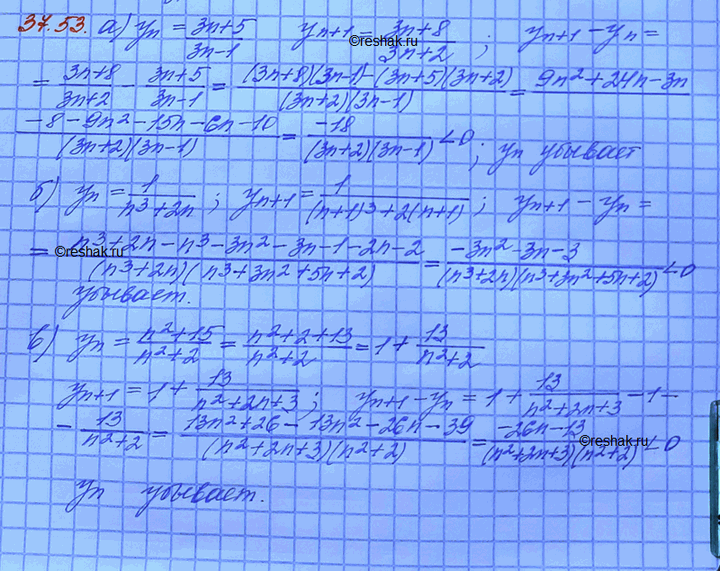 37.53. а) yn = 3n+5/3n-1 yn+1 = 3n+8/3n+2 ; yn+1 - yn =
©reshak.ru
= 3n+8/3n+2 - 3n+5/3n-1 = (3n+8)(3n-1)-(3n+5)(3n+2)/(3n+2)(3n-1) = 9n²+24n-3n
-8-9n²-15n-6n-10/(3n+2)(3n-1) = -18/(3n+2)(3n-1) <0 ; yn убывает
б) yn = 1/n³+2n ; yn+1 = 1/(n+1)³+2(n+1) ; yn+1 - yn =
= n³+2n-n³-3n²-3n-1-2n-2/(n³+2n)(n³+3n²+5n+2) = -3n²-3n-3/(n³+2n)(n³+3n²+5n+2) <0
©reshak.ru
убывает.
в) yn = n²+15/n²+2 = n²+2+13/n²+2 = 1 + 13/n²+2
yn+1 = 1 + 13/n²+2n+3 ; yn+1 - yn = 1 + 13/n²+2n+3 - 1 -
- 13/n²+2 = 13n²+26-13n²-26n-39/(n²+2n+3)(n²+2) = -26n-13/(n²+2n+3)(n²+2) <0
©reshak.ru
yn убывает.